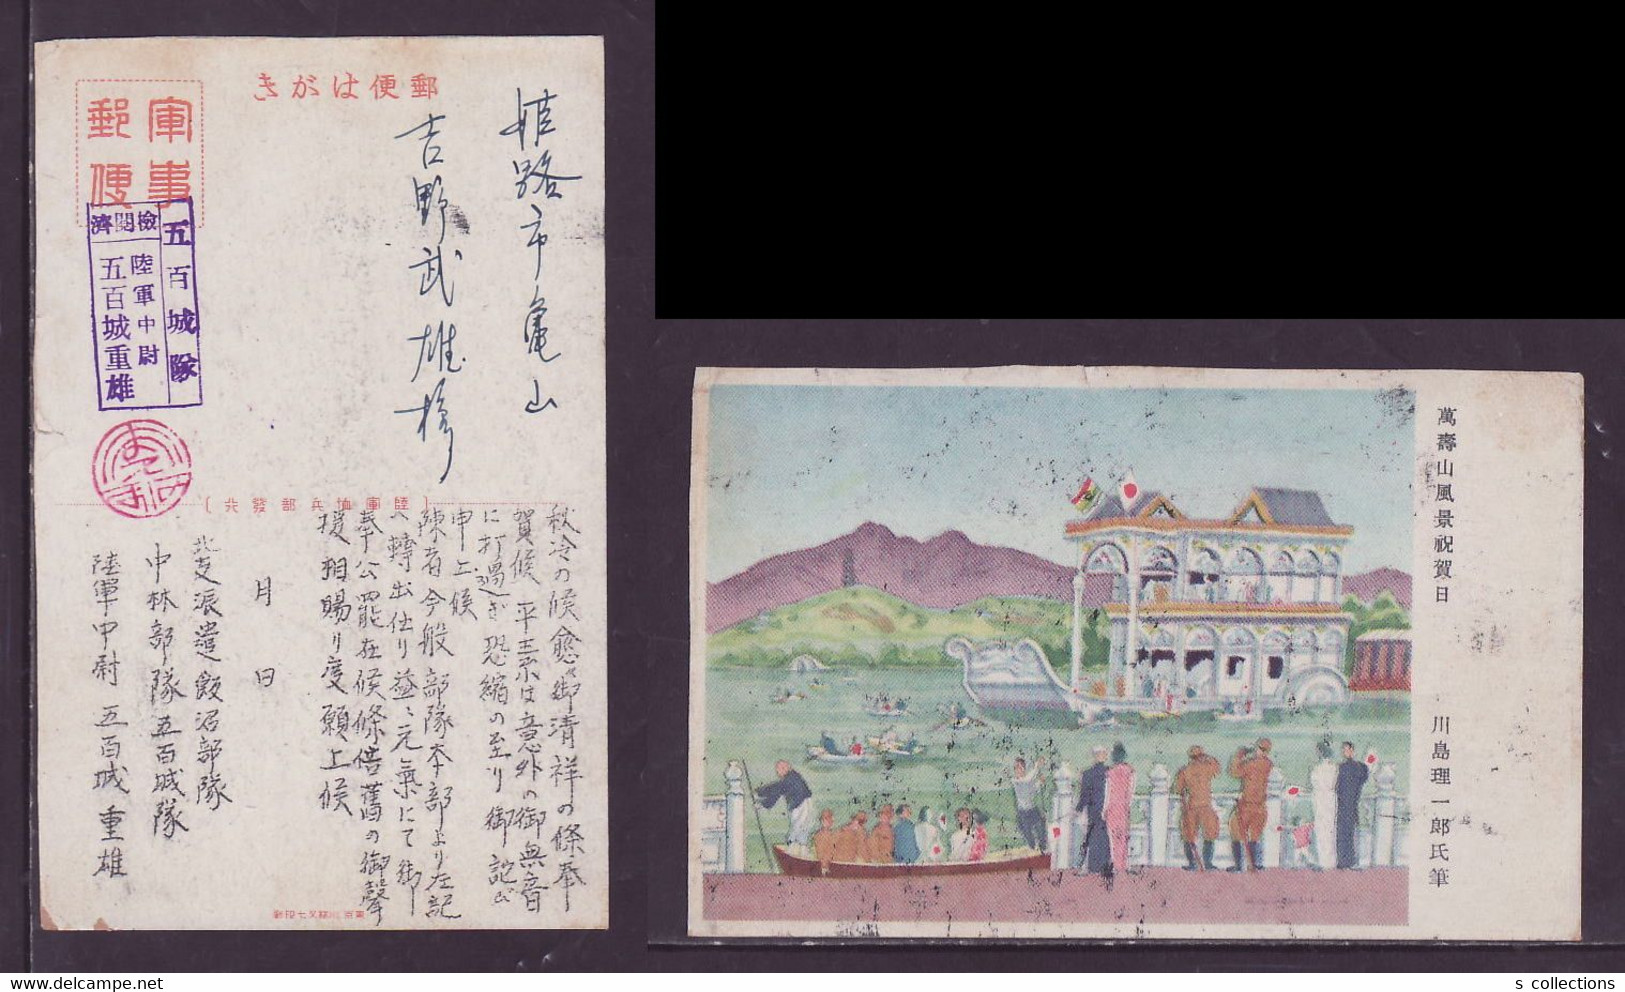 郵便はがき
軍事
郵便
五百城隊
檢閲濟
陸軍中尉
五百城重雄
姫路市亀山
吉野武雄様
陸軍恤兵部發行
秋冷の候愈々御清祥の條奉
賀候 平素は意外の御無音
に打過ぎ恐縮の至り御詫び
申上候
陳者今般部隊本部より左記
へ轉出仕り益々元氣にて御
奉公罷在候條倍舊の御聲
援相賜り度願上候
月 日
北支派遣飯沼部隊
中林部隊五百城隊
陸軍中尉 五百城重雄
萬壽山風景祝賀日 川島理一郎氏筆
s collections